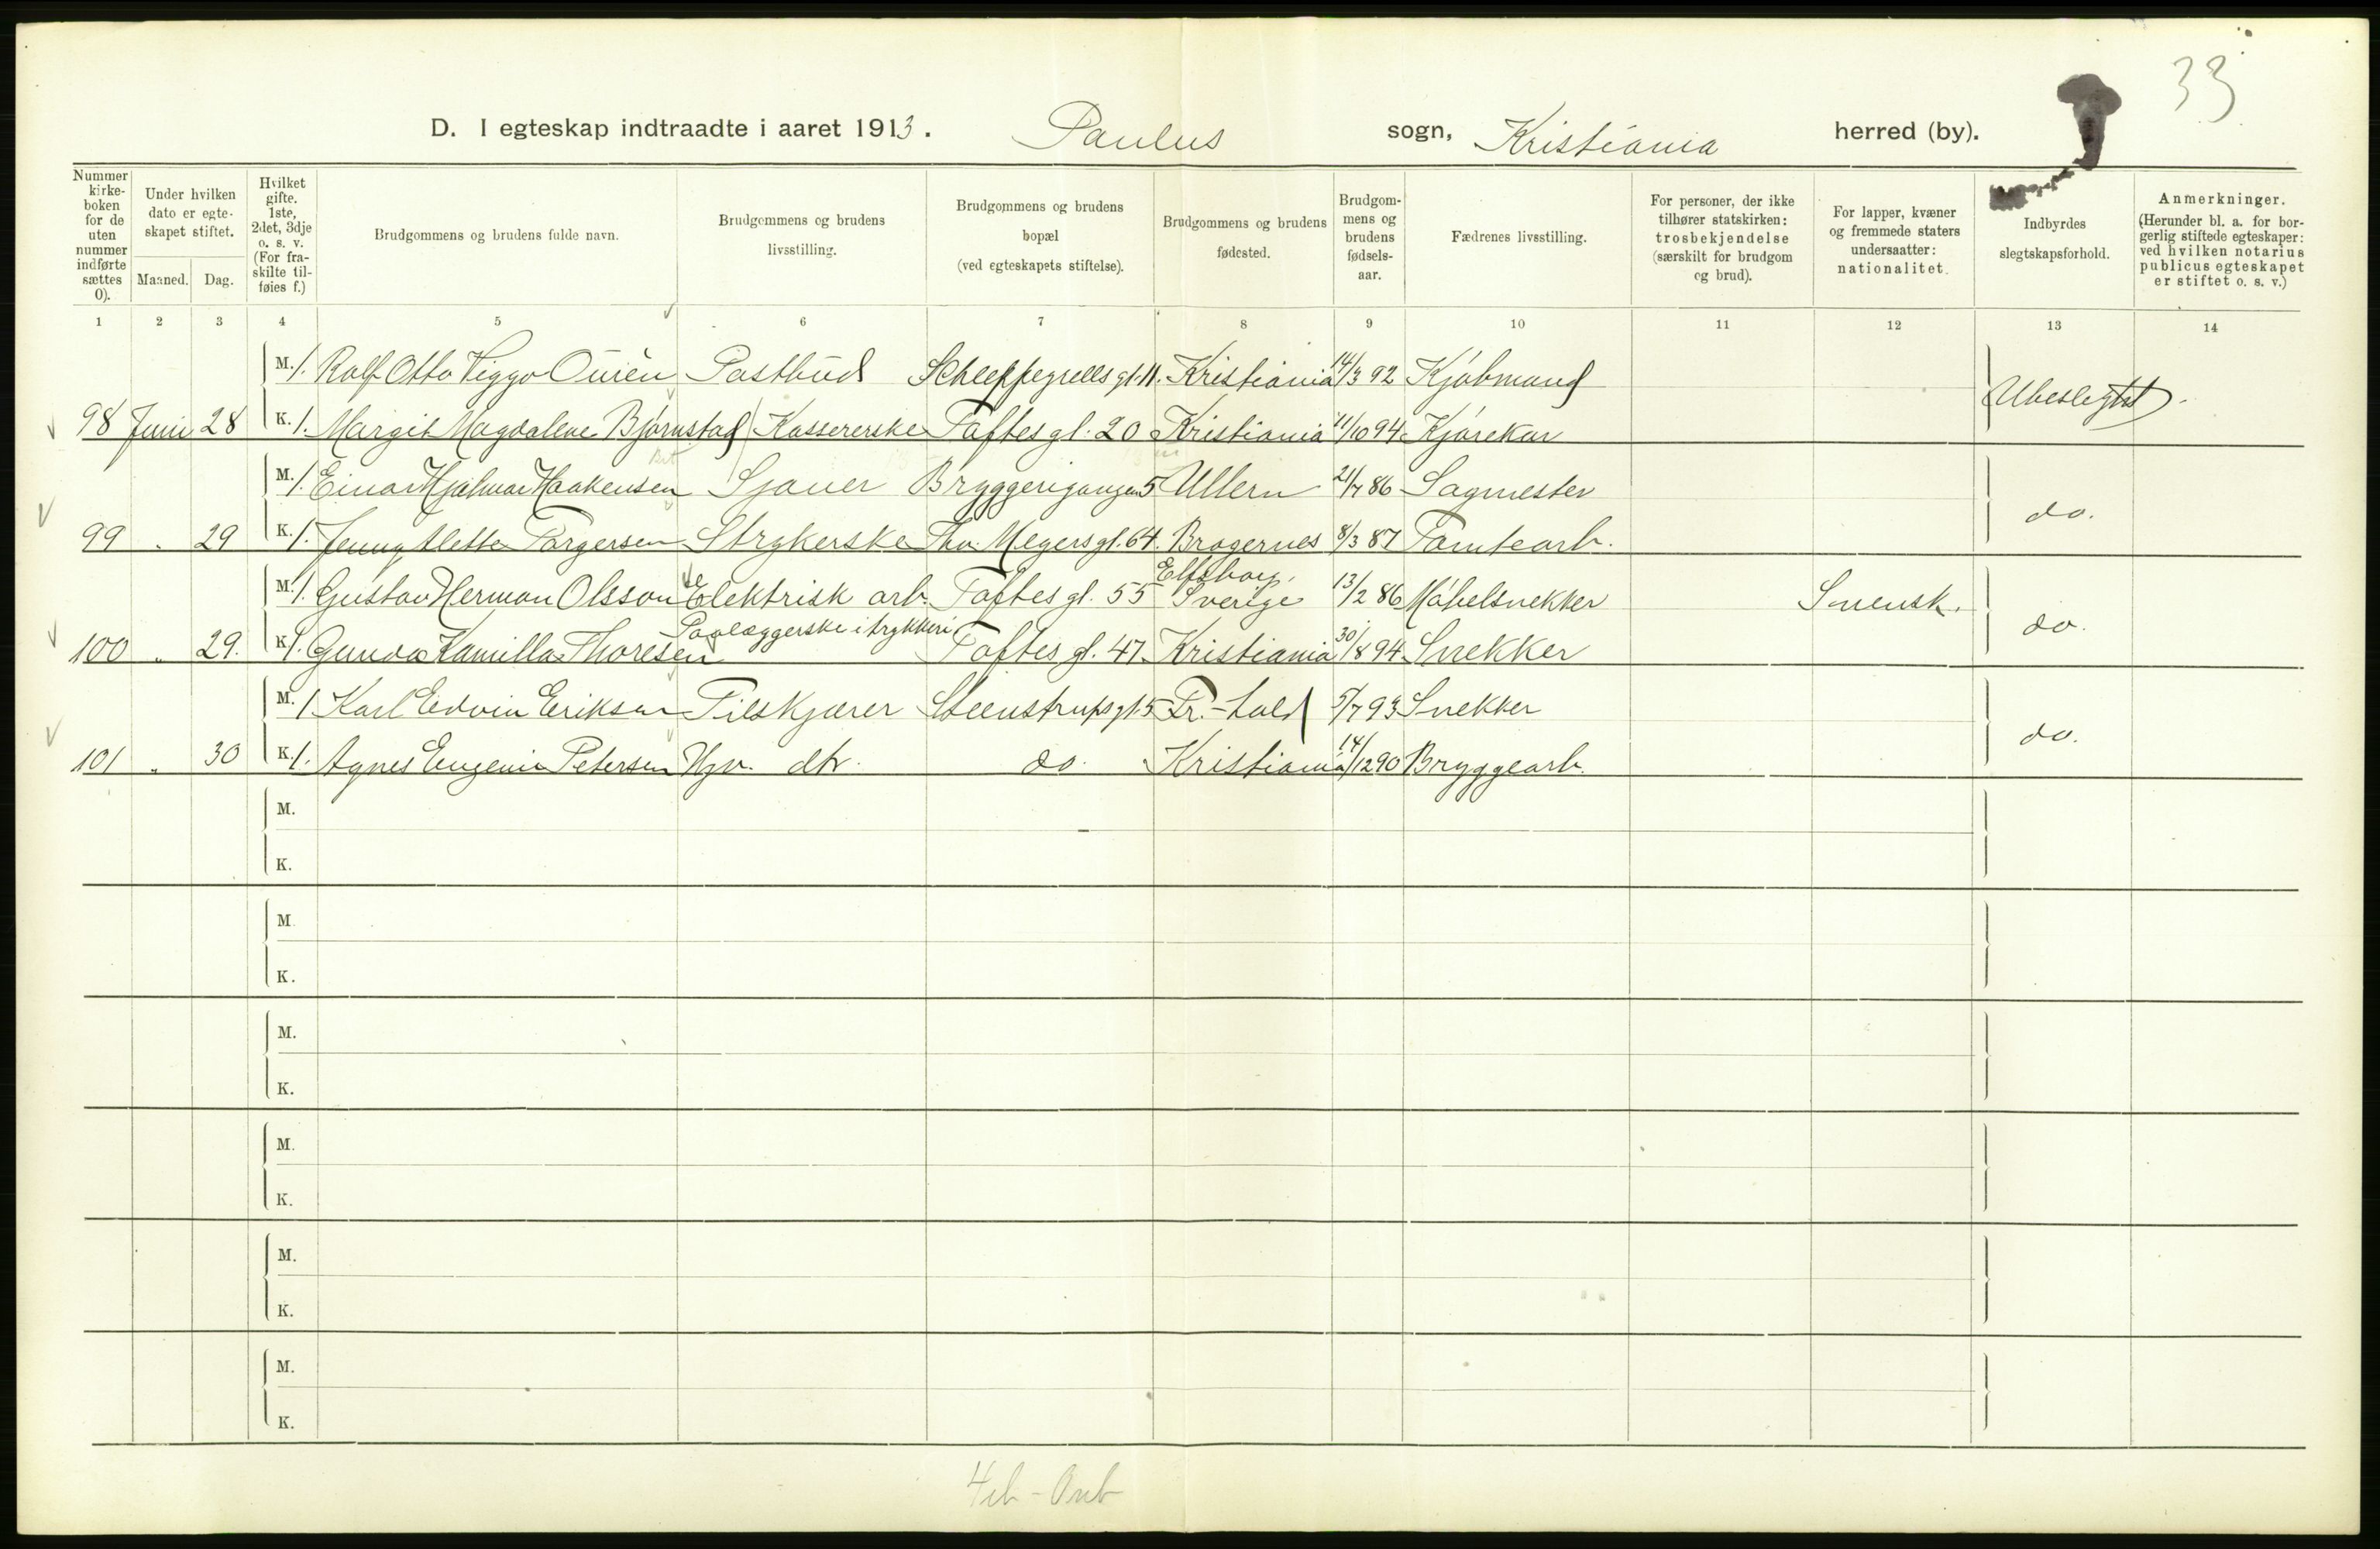 33
D. I egteskap indtraadte i aaret 1913. Paulus sogn, Kristiania herred (by).
Nummer kirkeboken for de uten nummer indførte sættes 0).
Under hvilken dato er egteskapet stiftet.
Maaned. Dag.
Hvilket gifte. 1ste, 2det, 3dje o. s. v. (For fraskilte tilføies f.)
Brudgommens og brudens fulde navn.
Brudgommens og brudens livsstilling.
Brudgommens og brudens bopæl (ved egteskapets stiftelse).
Brudgommens og brudens fødested.
Brudgommens og brudens fødselsaar.
Fædrenes livsstilling.
For personer, der ikke tilhører statskirken: trosbekjendelse (særskilt for brudgom og brud).
For lapper, kvæner og fremmede staters undersaatter: nationalitet.
Indbyrdes slegtskapsforhold.
Anmerkninger. (Herunder bl. a. for borgerlig stiftede egteskaper: ved hvilken notarius publicus egteskapet er stiftet o. s. v.)
1 2 3 4 5 6 7 8 9 10 11 12 13 14
M. 1. Rolf Otto Viggo Ourèn Postbud Schleppegrells gt. 11. Kristiania 14/3 92 Kjøbmand
Ubeslegtet.
98 Juni 28 K. 1. Margit Magdalene Bjørnstad Kassererske Toftes gt. 20 Kristiania 11/10 94 Kjørekar
M. 1. Einar Hjalmar Haakensen Sjauer Bryggerigangen 5 Ullern 21/7 86 Sagmester
do.
99 . 29 K. 1. Jenny Alette Torgersen Strykerske Thv. Meyers gt. 64. Bragernes 8/3 87 Tomtearb.
Elfsborg,
M. 1. Gustav Herman Olsson Elektrisk arb. Toftes gt. 55 Sverige 13/2 86 Møbelsnekker Svensk.
do.
Paalæggerske i trykkeri
100 . 29. K. 1. Gunda Kamilla Thoresen Toftes gt. 47. Kristiania 30/8 94 Snekker
M. 1. Karl Edvin Eriksen Filskjærer Steenstrups gt. 5 Fr.-hald 5/7 93 Snekker
do.
101 . 30 K. 1. Agnes Eugenie Petersen Hjv. dtr. do. Kristiania 14/12 90 Bryggearb.
M.
K.
M.
K.
M.
K.
M.
K.
M.
K.
M.
K.